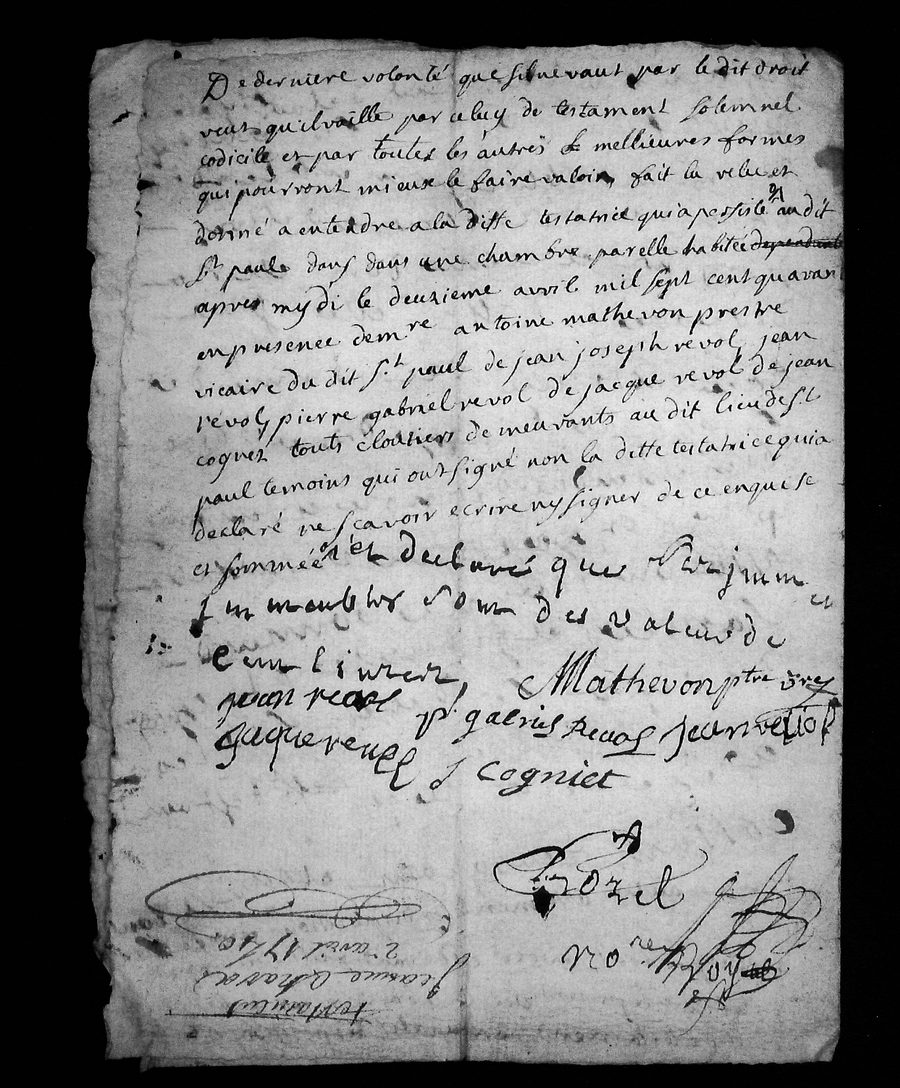 De derniere volonté que sil ne vaut par le dit droit
veut qu'il vaille par celuy de testament solemnel
codicile et par toutes les autres & mellieures formes
qui pourront mieux le faire valoir, fait lu relu et
donné a entendre a la ditte testatrice qui a persisté au dit
St paule dans dans une chambre par elle habitée dependante
apres mydi le deuzieme avril mil sept cent quarant
en presence de mre antoine mathevon prestre
vicaire du dit St paul de jean joseph revol, jean
revol, pierre gabriel revol de jacque revol de jean
cognet touts cloutiers demeurants au dit lieu de St
paul temoins qui ont signé non la ditte testatrice qui a
declaré ne scavoir ecrire ny signer de ce enquise
et sommée et declaré que
immeubles sont des valeur de
cent livres
Mathevon ptre vre
jean revol
p. gabriel Revol jean revol
jaque revoll j Cogniet
Borel
nore Roy
testament
Jeanne Charas
2 avril 1740